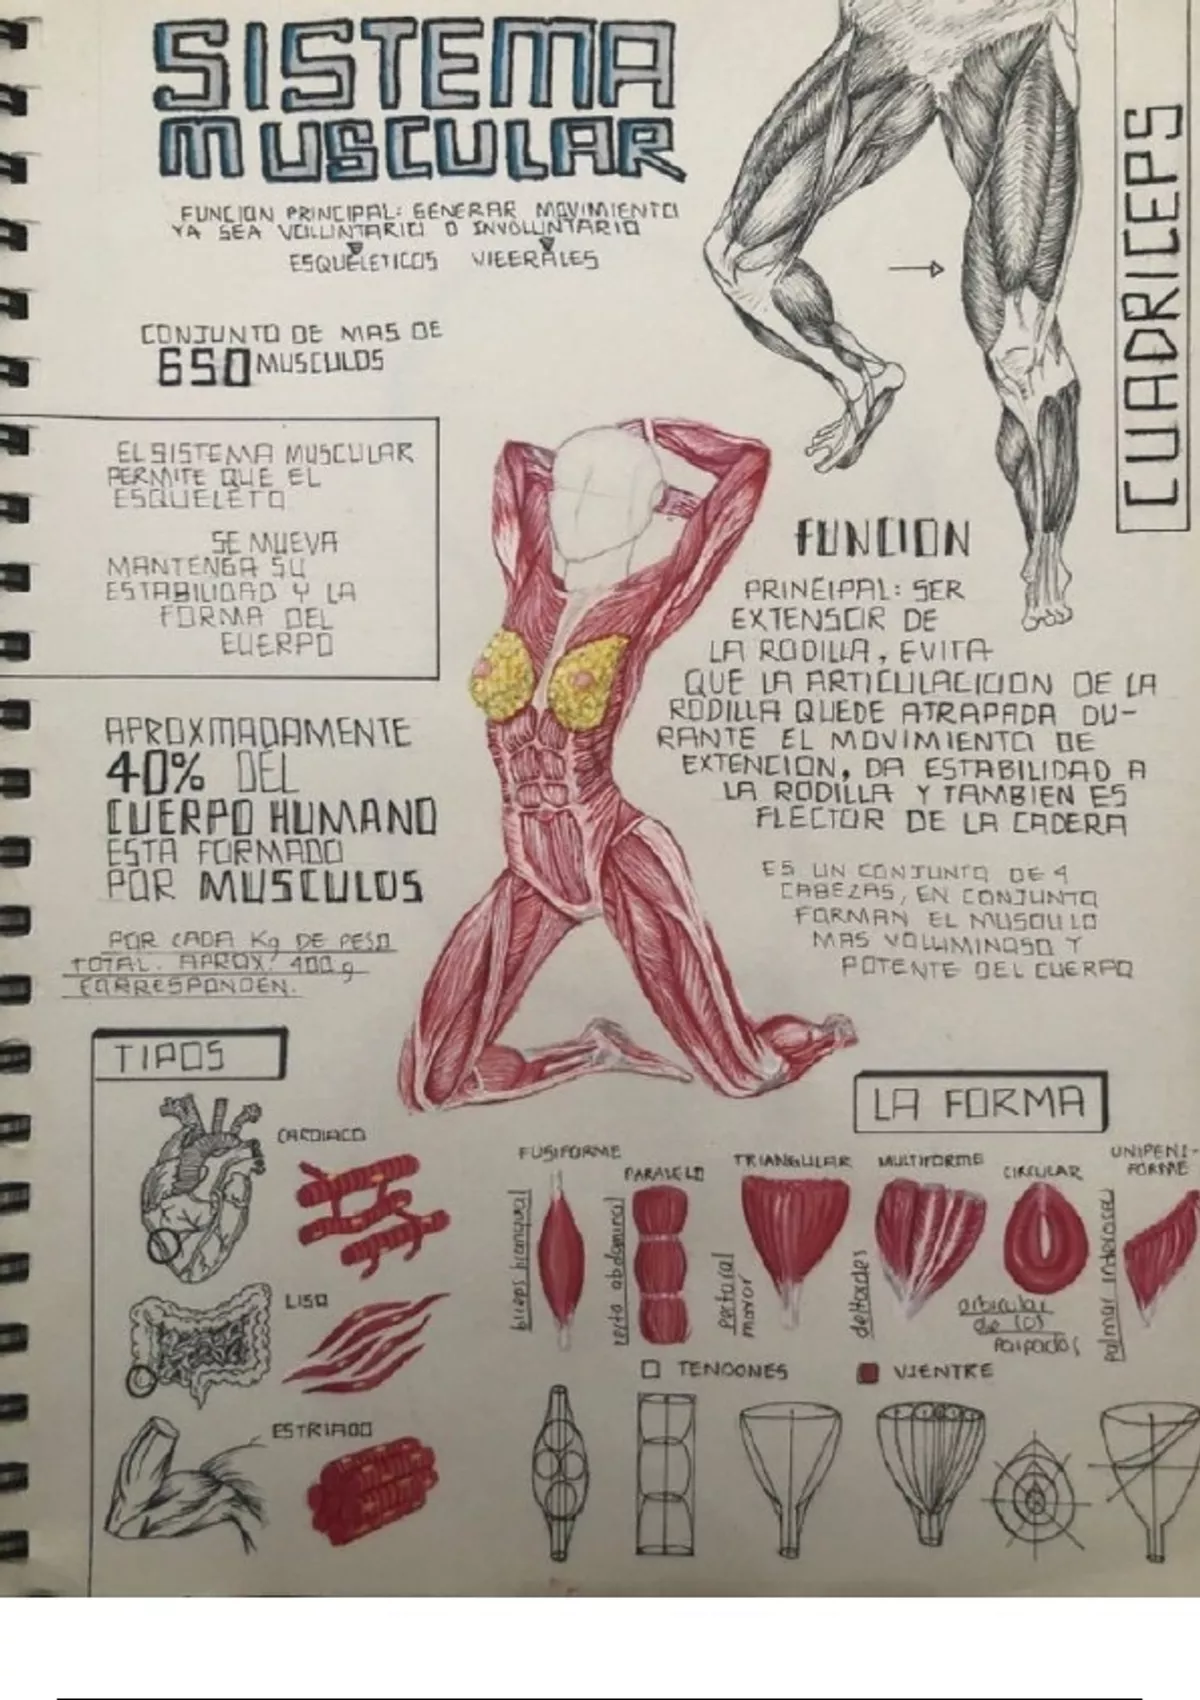 SISTEMA
MUSCULAR
FUNCION PRINCIPAL: GENERAR MOVIMIENTO
YA SEA VOLUNTARIO O INVOLUNTARIO
ESQUELETICOS VICERALES
CONJUNTO DE MAS DE
650 MUSCULOS
EL SISTEMA MUSCULAR
PERMITE QUE EL
ESQUELETO
SE MUEVA
MANTENGA SU
ESTABILIDAD Y LA
FORMA DEL
CUERPO
APROXMADAMENTE
40% DEL
CUERPO HUMANO
ESTA FORMADO
POR MUSCULOS
POR CADA Kg DE PESO
TOTAL. APROX. 400 g
CORRESPONDEN.
CUADRICEPS
FUNCION
PRINCIPAL: SER
EXTENSOR DE
LA RODILLA, EVITA
QUE LA ARTICULACICION DE LA
RODILLA QUEDE ATRAPADA DU-
RANTE EL MOVIMIENTO DE
EXTENCION, DA ESTABILIDAD A
LA RODILLA Y TAMBIEN ES
FLECTOR DE LA CADERA
ES UN CONJUNTO DE 4
CABEZAS, EN CONJUNTO
FORMAN EL MUSCULO
MAS VOLUMINOSO Y
POTENTE DEL CUERPO
TIPOS
CARDIACO
LISO
ESTRIADO
LA FORMA
FUSIFORME
PARALELO
TRIANGULAR
MULTIFORME
CIRCULAR
UNIPENI-
FORME
biceps branquial
recto abdominal
pectoral
mayor
deltoides
orbicular
de los
parpados
palmar interoseo
TENDONES
VIENTRE